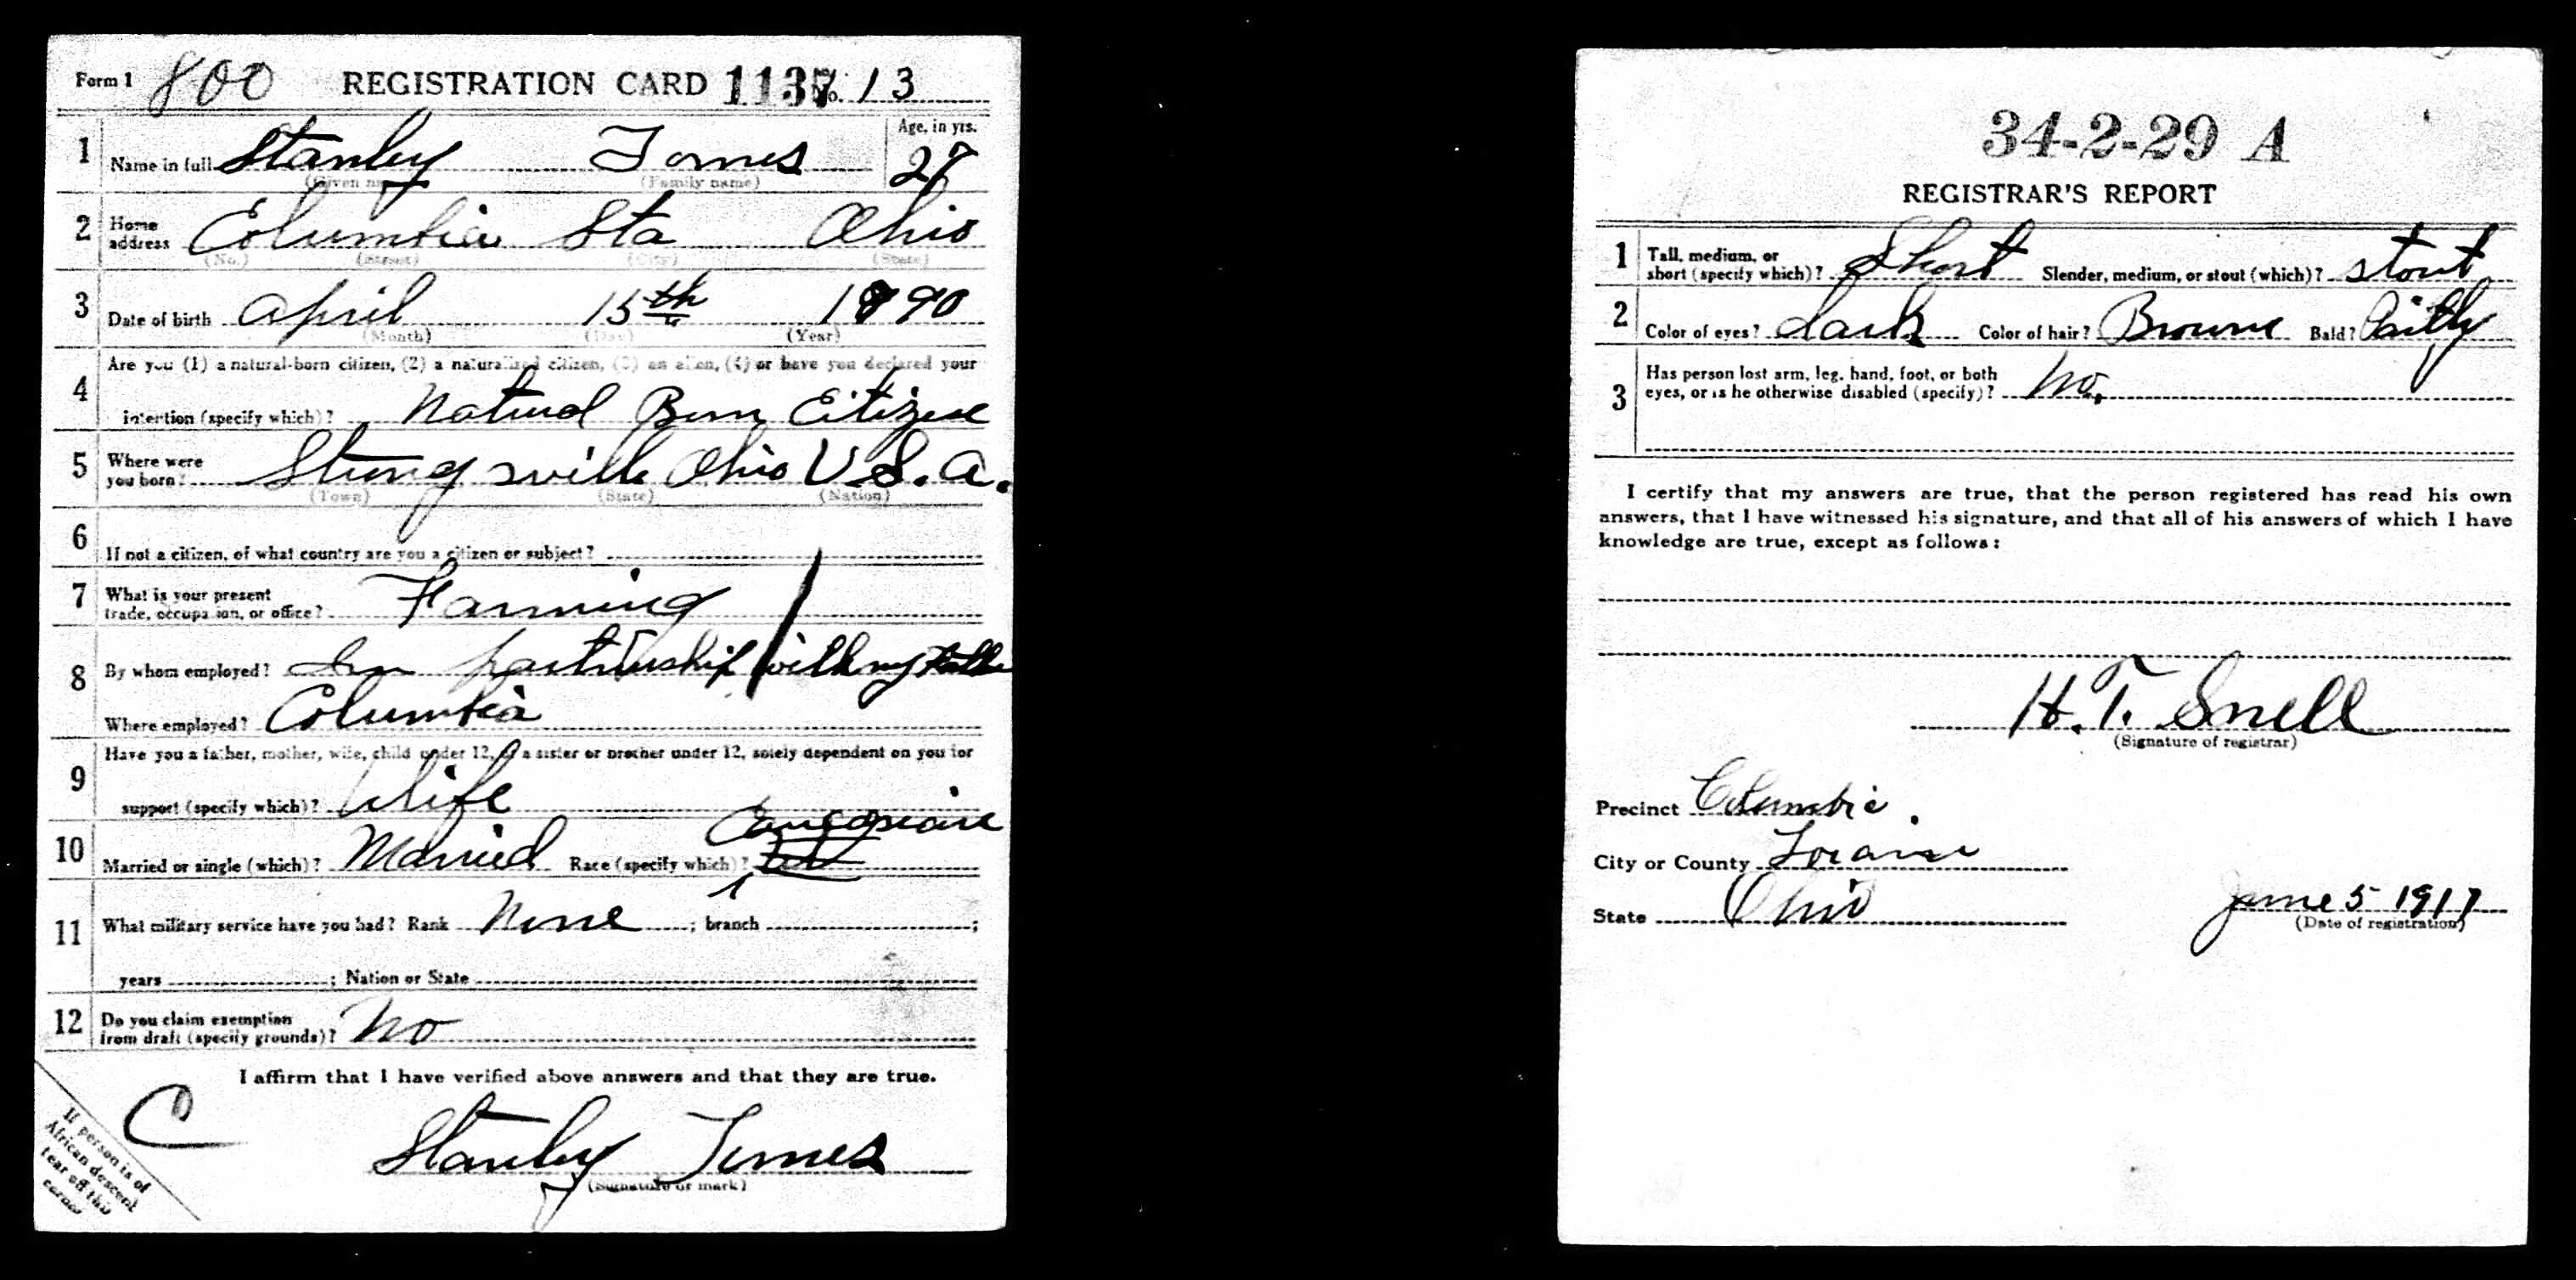 Form 1 800 REGISTRATION CARD 1137 No. 13
1 Name in full Stanley Tomes Age, in yrs. 27
(Given name) (Family name)
2 Home address Columbia Sta Ohio
(No.) (Street) (City) (State)
3 Date of birth April 15th 1890
(Month) (Day) (Year)
4 Are you (1) a natural-born citizen, (2) a naturalized citizen, (3) an alien, (4) or have you declared your
intention (specify which)? Natural Born Citizen
5 Where were you born? Strongsville Ohio U.S.A.
(Town) (State) (Nation)
6 If not a citizen, of what country are you a citizen or subject?
7 What is your present trade, occupation, or office? Farming
8 By whom employed? In partnership with my
Where employed? Columbia
9 Have you a father, mother, wife, child under 12, or a sister or brother under 12, solely dependent on you for
support (specify which)? Wife
10 Married or single (which)? Married Race (specify which)? Caucasian
11 What military service have you had? Rank None ; branch ;
years ; Nation or State
12 Do you claim exemption from draft (specify grounds)? No
I affirm that I have verified above answers and that they are true.
C
Stanley Tomes
(Signature or mark)
If person is of
African descent
tear off this
corner
34-2-29 A
REGISTRAR'S REPORT
1 Tall, medium, or short (specify which)? Short Slender, medium, or stout (which)? stout
2 Color of eyes? dark Color of hair? Brown Bald? Partly
3 Has person lost arm, leg, hand, foot, or both
eyes, or is he otherwise disabled (specify)? No.
I certify that my answers are true, that the person registered has read his own
answers, that I have witnessed his signature, and that all of his answers of which I have
knowledge are true, except as follows:
H.T. Snell
(Signature of registrar)
Precinct Columbia.
City or County Lorain
State Ohio
June 5 1917
(Date of registration)